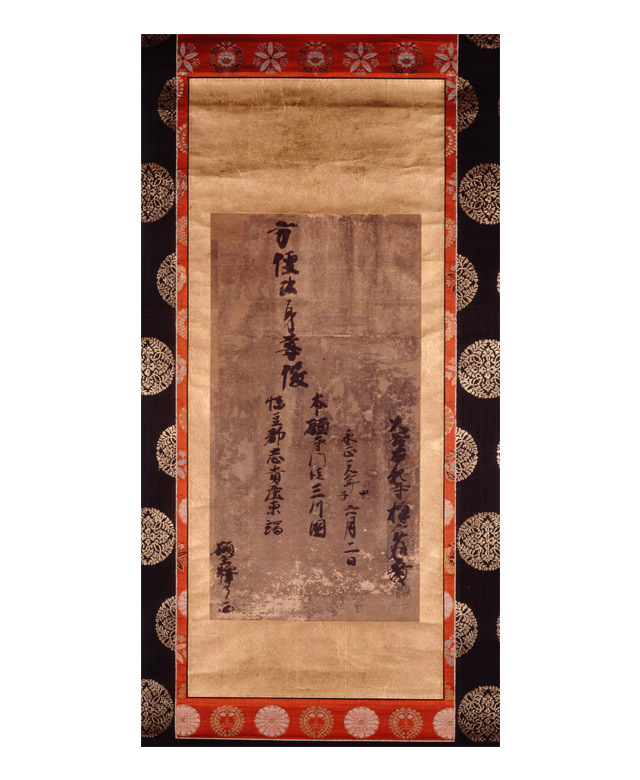 大谷本願寺釋實如
永正元年甲子六月二日
方便法身尊像
本願寺門徒三川國
幡豆郡志貴庄東端
願主釋了西